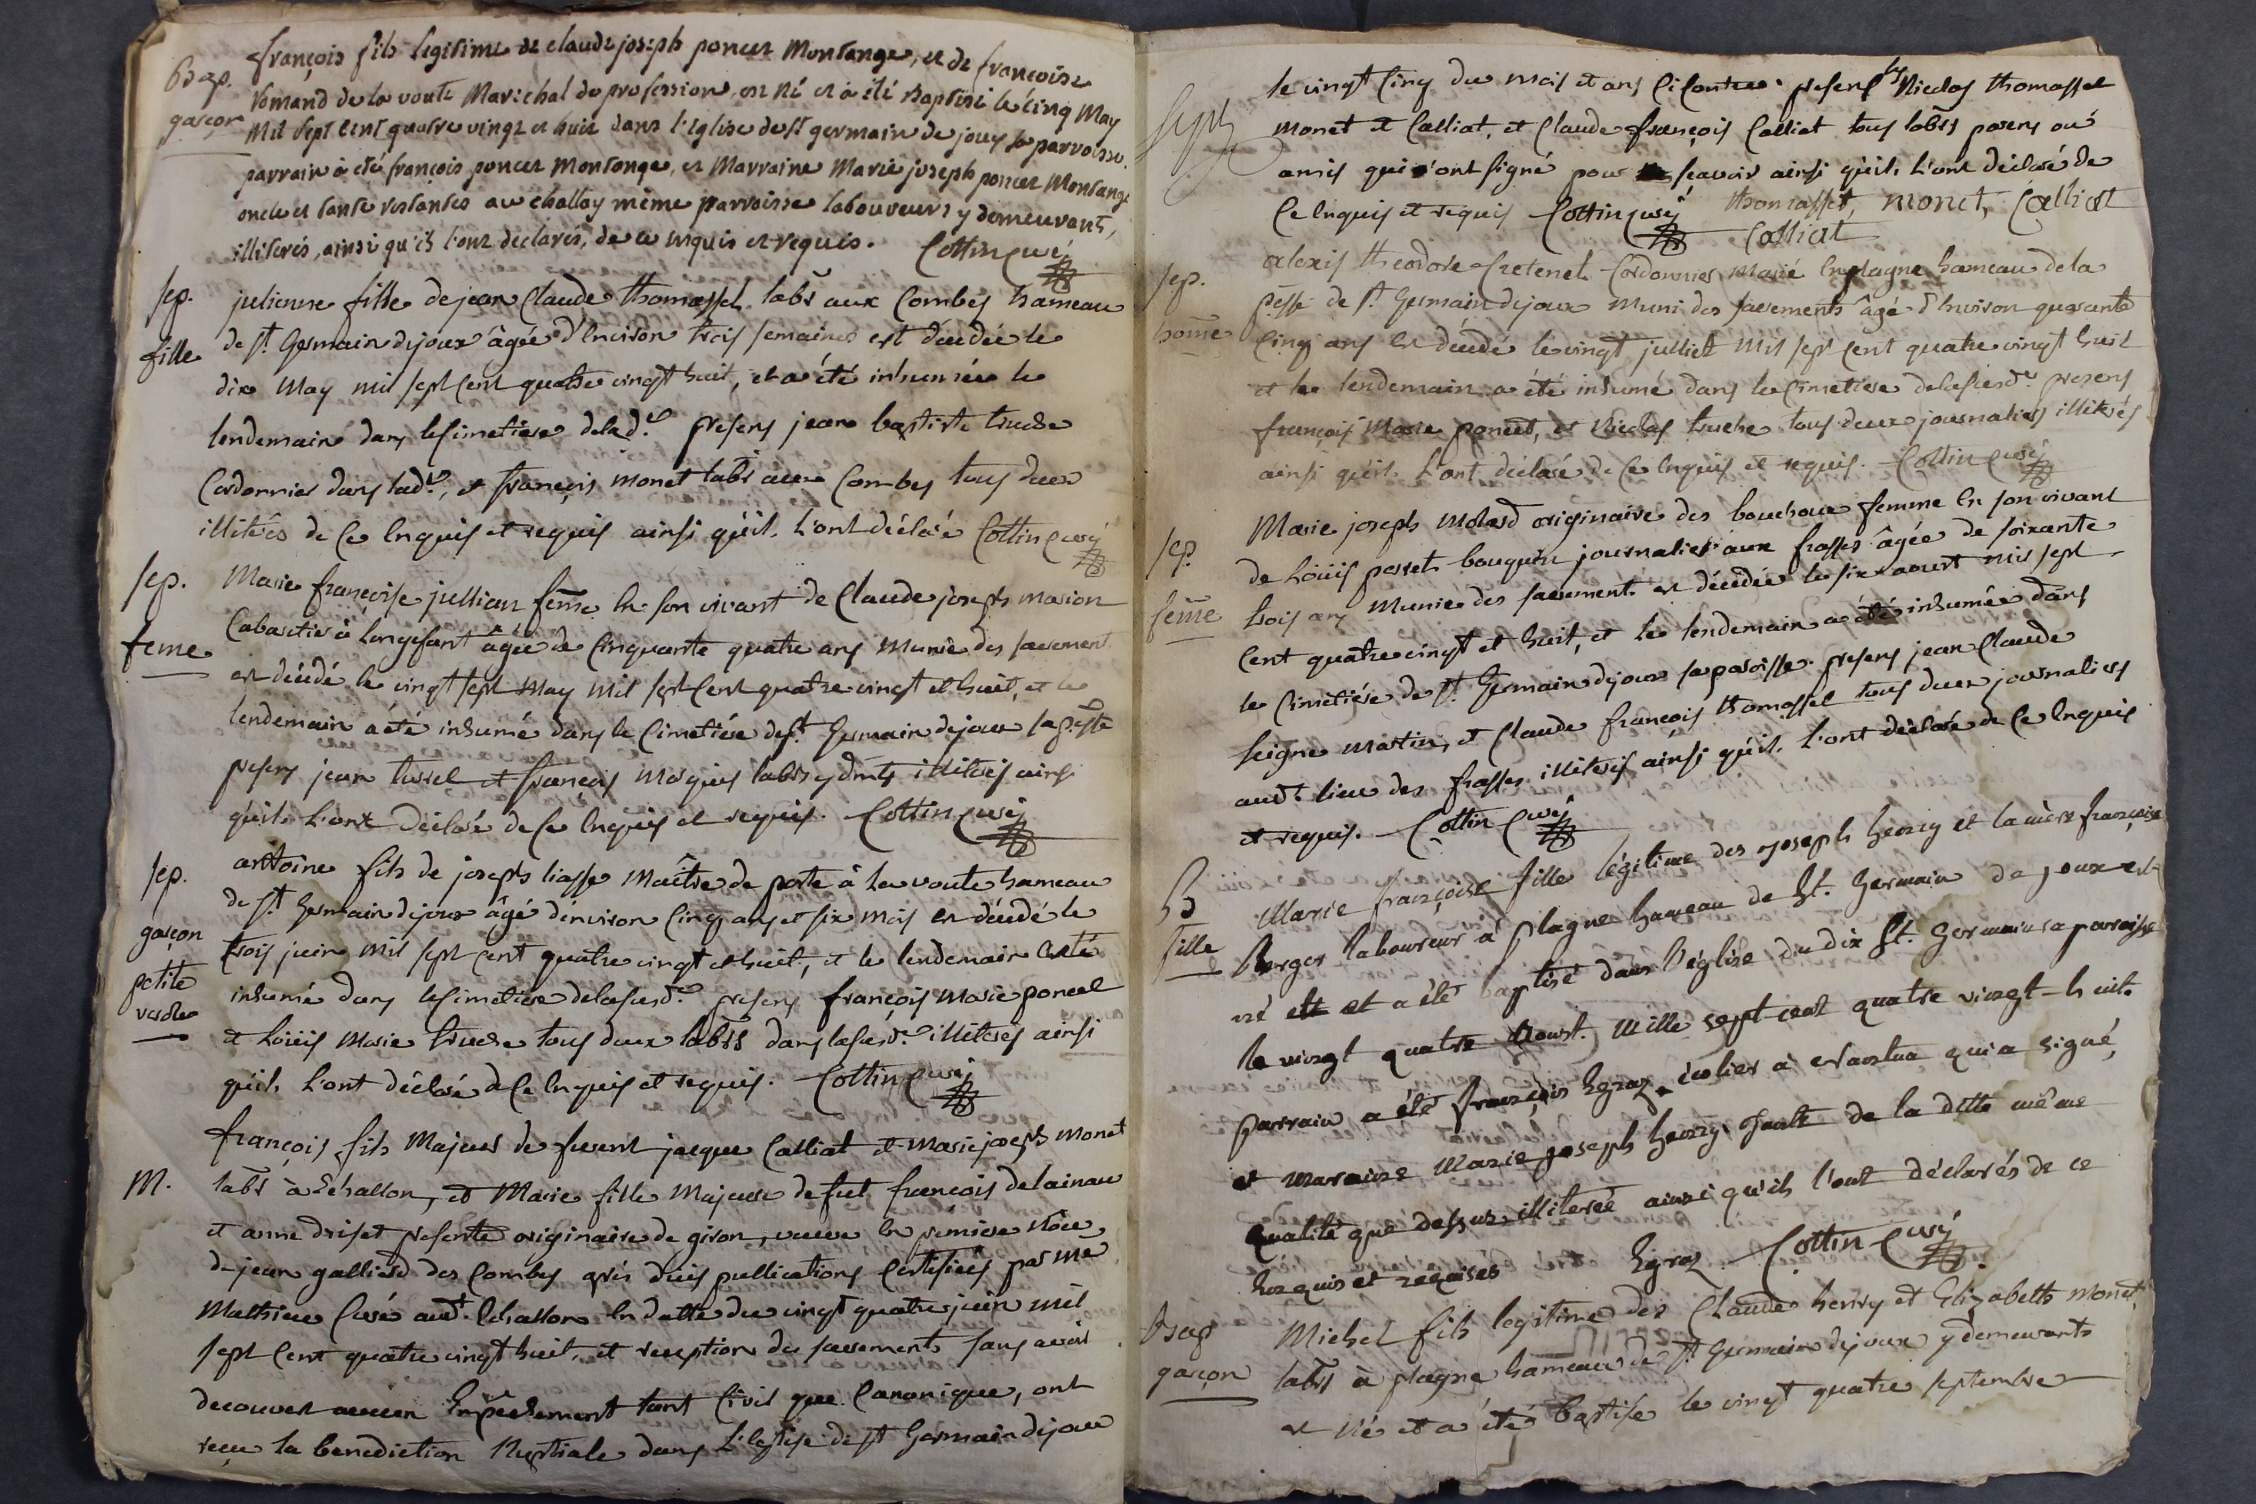 Bap.
garçon
françois fils legitime de claude joseph poncet Montange, et de françoise
romand de la voute Marichal de profession, est né et a été Baptisé le cinq May
Mil sept cent quatre vingt et huit dans l'Eglise de St germain de joux sa parroisse.
parrain à été françois poncet Montange, et Marraine Marie joseph poncet Montange
oncle et tante restantes au challay même parroisse laboureurs y demeurants,
illiterés, ainsi qu'ils l'ont declarés, de ce enquis et requis. Cottin curé
sep.
fille
julienne fille de jean Claude thomasset labr aux Combes hameau
de St Germain dejoux âgée d'environ trois semaines est décedée le
dix May mil sept cent quatre vingt huit, et a été inhumée le
lendemain dans le cimetiere delad.e presens jean baptiste truche
Cordonnier dans lad.e, et françois monet labr aux Combes tous deux
illiterés de Ce Enquis et requis ainsi qu'ils l'ont déclaré Cottin curé
sep.
feme
Marie françoise jullian feme En son vivant de Claude joseph marion
Cabaretier à longefant âgée de Cinquante quatre ans Munie des sacrement
est décédé le vingt sept May Mil sept Cent quatre vingt et huit, et le
lendemain a été inhumé dans le Cimetière de St Germain dejoux sa psse
presens jean turrel et françois Marquis labrs y dmts illiterés ainsi
qu'ils l'ont déclaré de Ce Enquis et requis. Cottin curé
sep.
garçon
petite
verole
antoine fils de joseph liasse Maître de poste à la voute hameau
de St Germain dejoux âgé d'environ Cinq ans et six mois est décédé le
trois juin mil sept cent quatre vingt et huit, et le lendemain a été
inhumé dans le cimetiere delasusd.e presens françois Marie poncet
et Loüis Marie truche tous deux labrs dans lasusd.e illiterés ainsi
qu'ils l'ont déclaré de Ce Enquis et requis. Cottin curé
M.
françois fils Majeur de feu jacque Calliat et Marie joseph Monet
labr à Echallon, et Marie fille Majeure de fut françois delainau
et anne driset presente originaire de giron, veuve En premiere nôce
de jean galliard des Combes après trois publications Certifiées par me
Mathieu Curé aud.t Echallon En datte du vingt quatre juin mil
sept Cent quatre vingt huit, et reception des sacrements sans avoir
decouvert aucun Empêchement tant Civil que Canonique, ont
reçu la benediction Nuptiale dans L'Eglise de St Germain dejoux
le vingt Cinq du mois et ans Ci Contre. presens Nicolas thomasset
monet et Calliat, et Claude françois Calliat tous labrs parens ou
amis qui ont signé pour sçavoir ainsi qu'ils l'ont déclaré de
Ce Enquis et requis Cottin curé thomasset, monet, Calliat
Calliat
sep.
home
alexis theodore Cretenet Cordonnier Marié En plagne hameau dela
psse de St Germain dejoux Muni des sacrements âgé d'Environ quarante
Cinq ans est décédé le vingt julliet Mil sept cent quatre vingt huit
et le lendemain a été inhumé dans le Cimetiere delasusd.e presens
françois Marie poncet, et Nicolas truche tous deux journaliers illiterés
ainsi qu'ils l'ont déclaré de Ce Enquis et requis. Cottin curé
sep.
feme
Marie joseph Molard originaire des bouchoux femme En son vivant
de Loüis perret bouquin journalier aux frasses âgée de soixante
trois ans Munie des sacrements est décédée le six aoust mil sept
Cent quatre vingt et huit, et le lendemain a été inhumée dans
le Cimetiére de St Germain dejoux sa paroisse. presens jean Claude
seigne martin, et Claude françois thomasset tous deux journaliers
aud.t lieu des frasses illiterés ainsi qu'ils l'ont déclaré de Ce Enquis
et requis. Cottin curé
B
fille
Marie françoise fille légitime des Joseph henry et Laurence françoise
Berger laboureur à plagne hameau de St. Germain de joux est
né et a été baptisé dans l'église du dix St. Germain sa parroisse
le vingt quatre Aoust. Mille sept cent quatre vingt-huit.
parrain a été françois Egraz écolier à Nantua qui a signé,
et maraine Marie joseph henry tante de la ditte même
qualité que dessus, illiterée ainsi qu'ils l'ont déclarés de ce
Enquis et requises Egraz Cottin curé
Bap
garçon
Michel fils legitime des Claude henry et Elizabeth Monet
labrs à plagne hameau de St Germain dejoux y demeurants
est Né et a été baptisé le vingt quatre septembre